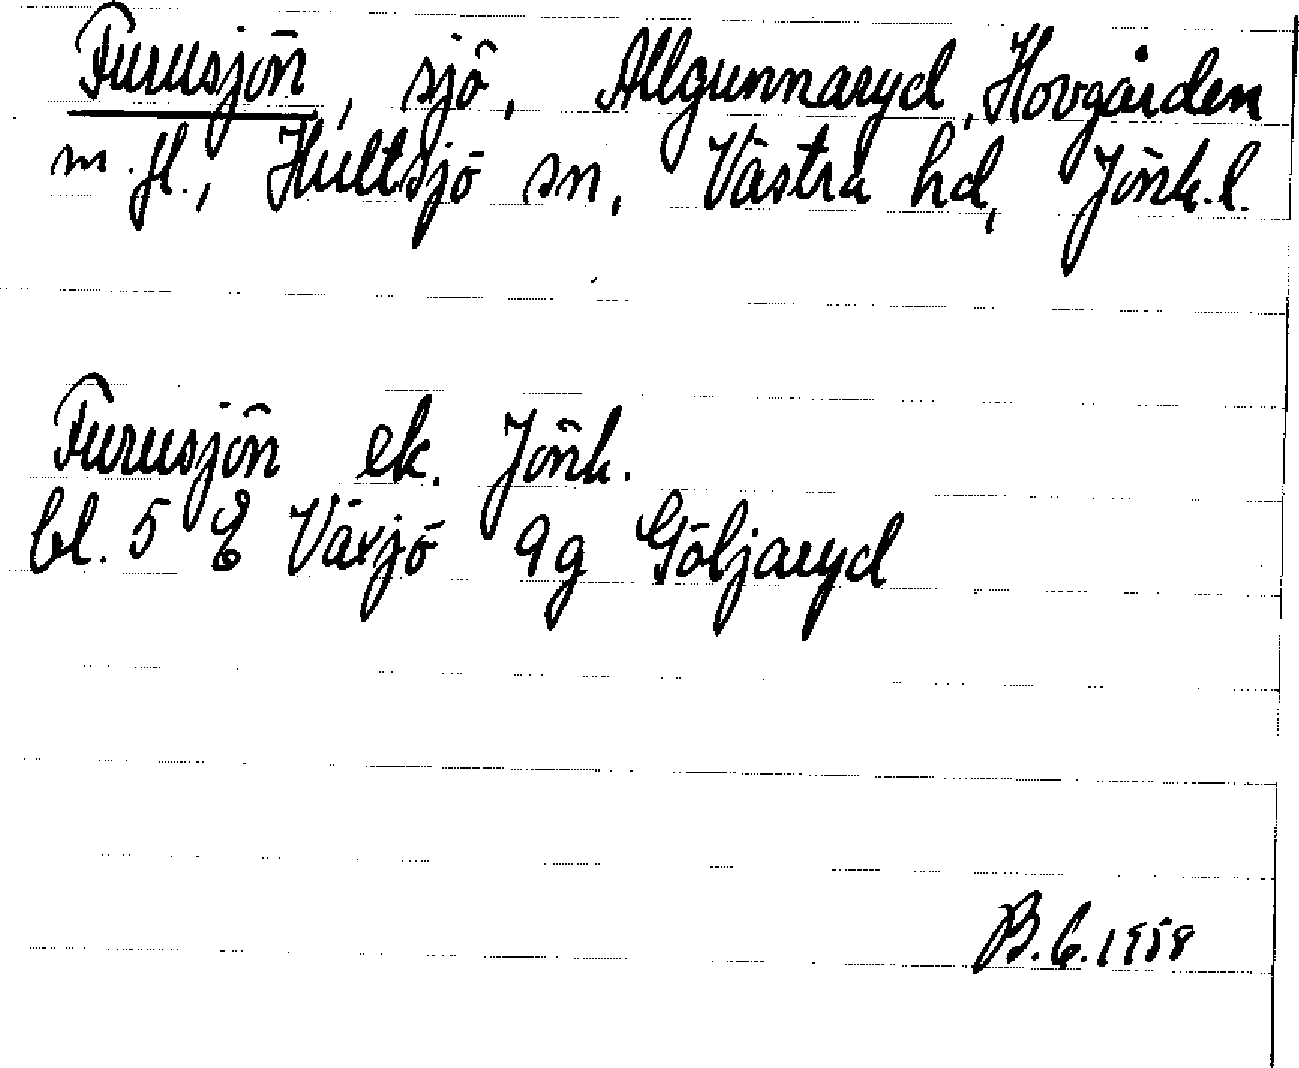 Furusjön, sjö, Allgunnaryd, Hovgården
m.fl., Hultsjö sn, Västra hd, Jönk.l.
Furusjön ek. Jönk.
bl. 5 E Växjö 9g Göljaryd
B.G. 1958